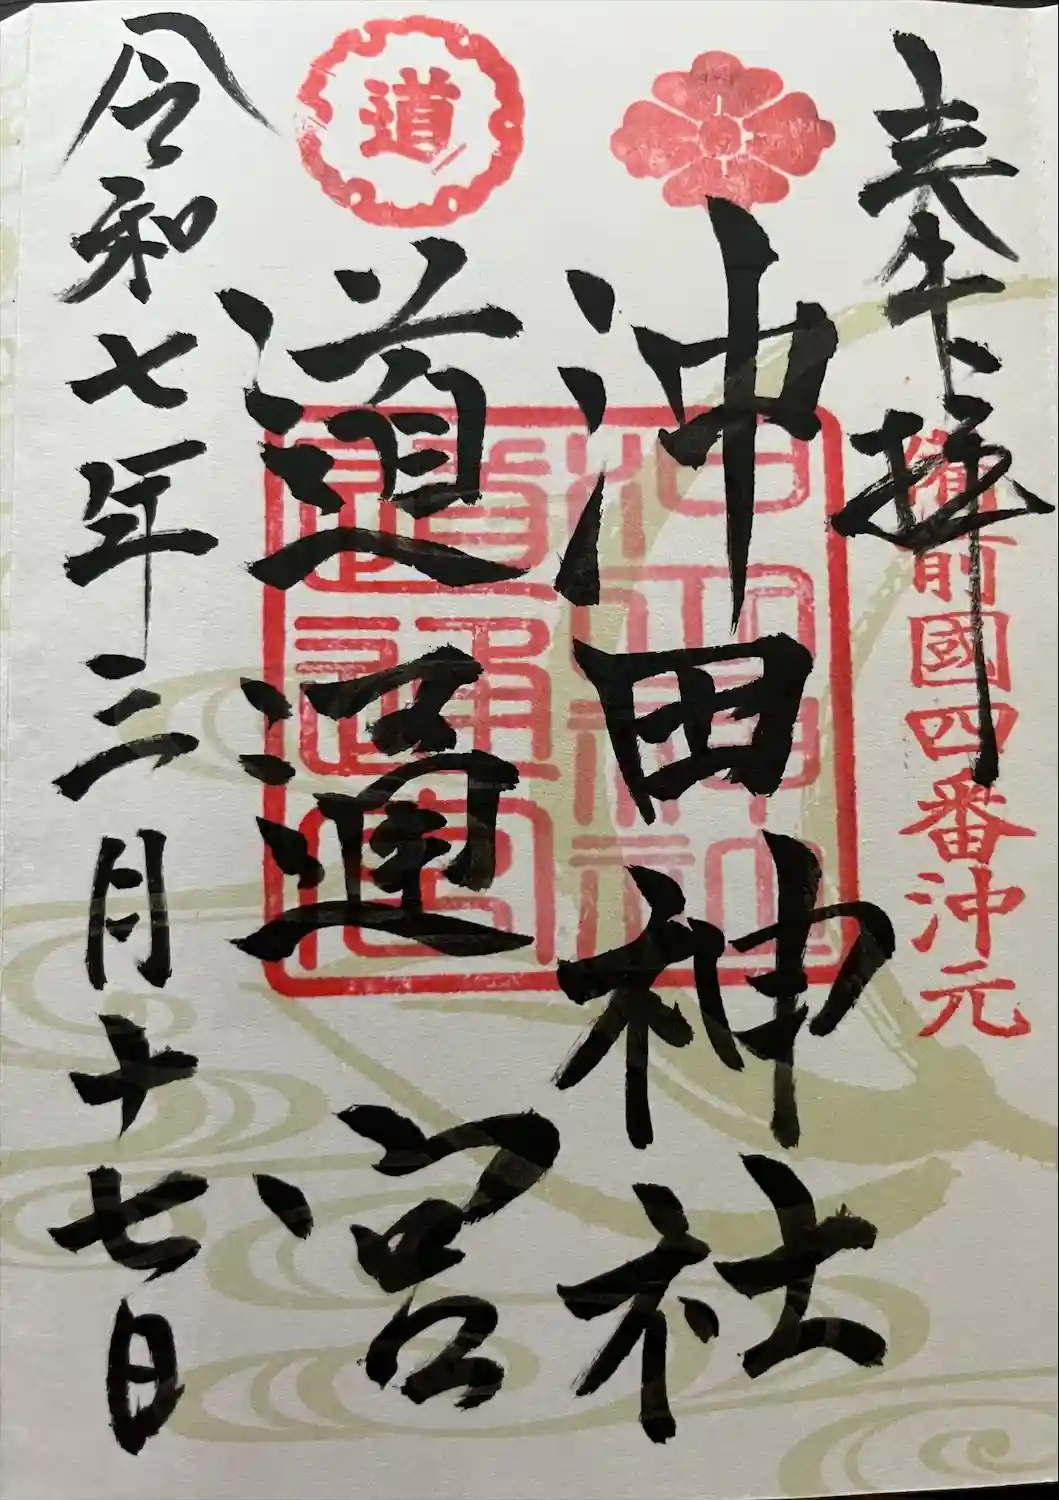 奉拝
備前國四番沖元
沖田神社
道通宮
道
沖田神社
道通宮
令和七年三月十七日